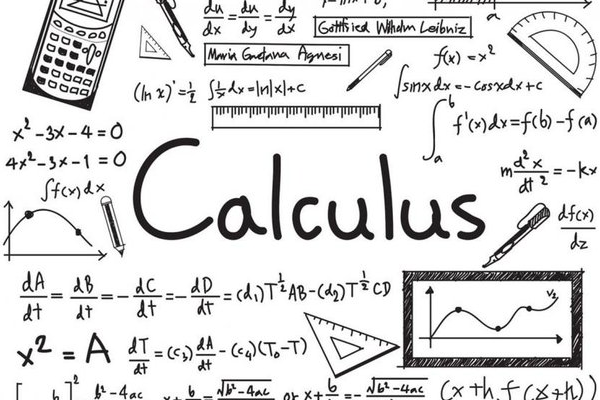 du/dx = du/dy dy/dx
Gottfried Wilhelm Leibniz
a
Maria Gaetana Agnesi
f(x) = x²
(ln x)' = 1/2
∫1/x dx = ln|x|+c
∫sinxdx = -cosxdx+c
∫ₐᵇ f'(x)dx = f(b) - f(a)
x² - 3x - 4 = 0
4x² - 3x - 1 = 0
m d²x/dt² = -kx
∫f(x)dx
Calculus
df(x)/dz
dA/dt = dB/dt = - dC/dt = - dD/dt = (d₁)T^½ AB - (d₂)T^½ CD
V₂
x² = A
dT/dt = (c₃) dA/dt - (c₄)(T₀-T)
b²-4ac
x + b = √b²-4ac or x + b/ = -√b²-4ac
(x+h, f(x+h)